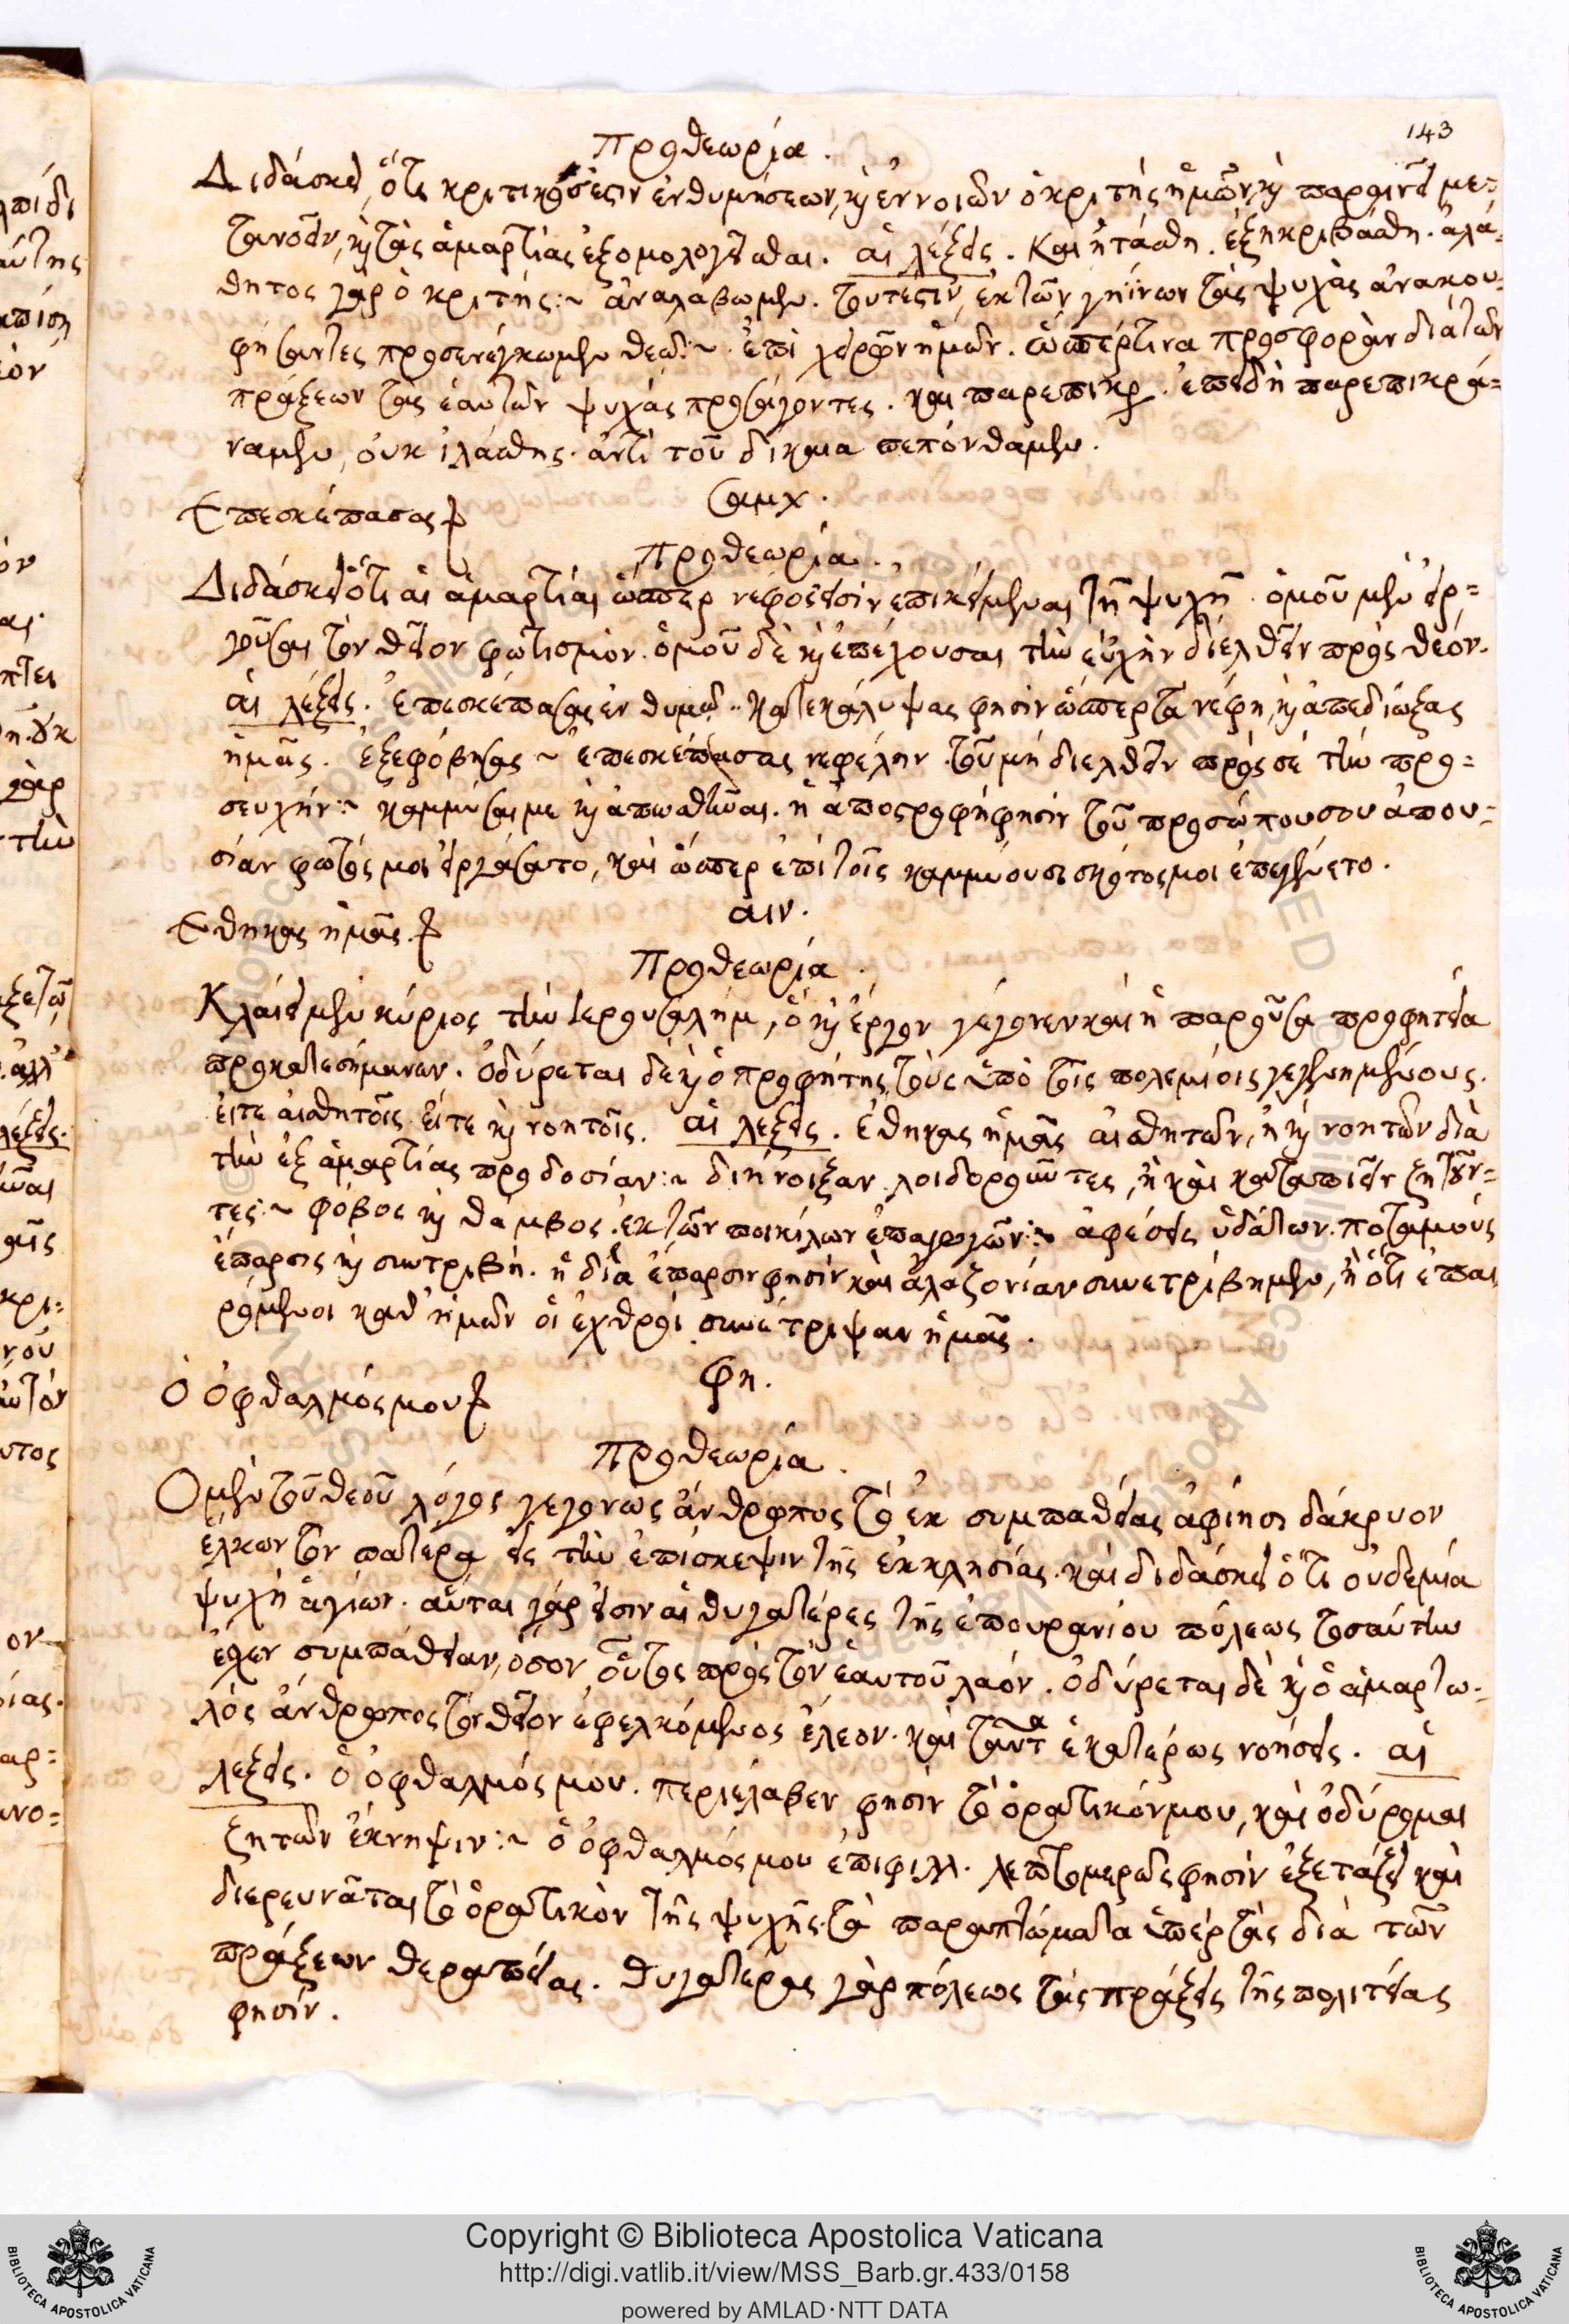 143
προθεωρία.
Διδάσκει, ὅτι κριτικός ἐστιν ἐνθυμήσεων, καὶ ἐννοιῶν ὁ κριτὴς ἡμῶν, καὶ παραινεῖ με=
τανοεῖν, καὶ τὰς ἁμαρτίας ἐξομολογεῖσθαι. αἱ λέξεις. Καὶ ἠτάσθη. ἐξηκριβάσθη. ἀλά=
θητος γὰρ ὁ κριτής:~ ἀναλάβωμεν. τουτέστιν, ἐκ τῶν γηΐνων τὰς ψυχὰς ἀνακου=
φήσαντες προσενέγκωμεν θεῷ:~ ἐπὶ χειρῶν ἡμῶν. ὥσπέρ τινα προσφορὰν διὰ τῶν
πράξεων τὰς ἑαυτῶν ψυχὰς προσάγοντες. καὶ παρεπικρ. ἐπειδὴ παρεπικρά=
ναμεν, οὐκ ἱλάσθης. ἀντὶ τοῦ δίκαια πεπόνθαμεν.
σαμχ.
Επεσκέπασας
προθεωρία.
Διδάσκει ὅτι αἱ ἁμαρτίαι ὥσπερ νέφος εἰσὶν ἐπικείμεναι τῇ ψυχῇ. ὁμοῦ μὲν εἴρ=
γουσαι τὸν θεῖον φωτισμόν. ὁμοῦ δὲ καὶ ἐπέχουσαι τὴν εὐχὴν διελθεῖν πρὸς θεόν.
αἱ λέξεις. ἐπεσκέπασας ἐν θυμῷ.. κατεκάλυψας φησὶν ὥσπερ τὰ νέφη, καὶ ἀπεδίωξας
ἡμᾶς. ἐξεφόβησας ~ ἐπεσκέπασας νεφέλην. τοῦ μὴ διελθεῖν πρὸς σὲ τὴν προ=
σευχήν:~ καμμύσαι με καὶ ἀπωσθῆναι. ἡ ἀποστροφή φησὶν τοῦ προσώπου σου ἀπου=
σίαν φωτός μοι εἰργάσατο, καὶ ὥσπερ ἐπὶ τοῖς καμμύουσι σκότος μοι ἐπεγένετο.
αιν.
Εθηκας ἡμᾶς.
Προθεωρία.
Κλαίει μὲν κύριος τὴν ἱερουσαλήμ, ὃ καὶ ἔργον γέγονεν καὶ ἡ παροῦσα προφητεία
προκατεσήμανεν. ὀδύρεται δὲ καὶ ὁ προφήτης τοὺς ὑπὸ τοῖς πολεμίοις γεγενημένους.
εἴτε αἰσθητοῖς εἴτε καὶ νοητοῖς. αἱ λέξεις. ἔθηκας ἡμᾶς αἰσθητῶν, ἢ καὶ νοητῶν διὰ
τὴν ἐξ ἁμαρτίας προδοσίαν:~ διήνοιξαν λοιδοροῦντες, ἢ καὶ καταπιεῖν ζητοῦν=
τες:~ φόβος καὶ θάμβος. ἐκ τῶν ποικίλων ἐπαγωγῶν:~ ἀφέσεις ὑδάτων. ποταμούς
ἔπαρσις καὶ συντριβή. ἢ διὰ ἔπαρσιν φησὶν καὶ ἀλαζονίαν συνετρίβημεν, ἢ ὅτι ἐπαι
ρόμενοι καθ' ἡμῶν οἱ ἐχθροὶ συνέτριψαν ἡμᾶς.
φη.
Ο ὀφθαλμός μου
προθεωρία.
Ο μὲν τοῦ θεοῦ λόγος γεγονὼς ἄνθρωπος τὸ ἐκ συμπαθείας ἀφίησι δάκρυον
ἕλκων τὸν πατέρα εἰς τὴν ἐπίσκεψιν τῆς ἐκκλησίας. καὶ διδάσκει ὅτι οὐδεμία
ψυχὴ ἁγίων. αὗται γάρ εἰσιν αἱ θυγατέρες τῆς ἐπουρανίου πόλεως τοσαύτην
ἔχει συμπάθειαν, ὅσον οὗτος πρὸς τὸν ἑαυτοῦ λαόν. ὀδύρεται δὲ καὶ ὁ ἁμαρτω=
λὸς ἄνθρωπος τὸν θεῖον ἐφελκόμενος ἔλεον. καὶ ταῦτα ἑκατέρως νοήσεις. αἱ
λέξεις. ὁ ὀφθαλμός μου. περιέλαβεν φησὶν τὸ ὁρατικόν μου, καὶ ὀδύρομαι
ζητῶν ἔκνηψιν:~ ὁ ὀφθαλμός μου ἐπιφιλλ. λεπτομερῶς φησὶν ἐξετάζει καὶ
διερευνᾶται τὸ ὁρατικὸν τῆς ψυχῆς. τὰ παραπτώματα ὑπὲρ τὰς διὰ τῶν
πράξεων θεραπείας. θυγατέρας γὰρ πόλεως τὰς πράξεις τῆς πολιτείας
φησίν.
Copyright © Biblioteca Apostolica Vaticana
http://digi.vatlib.it/view/MSS_Barb.gr.433/0158
powered by AMLAD·NTT DATA
BIBLIOTECA APOSTOLICA VATICANA
BIBLIOTECA APOSTOLICA VATICANA